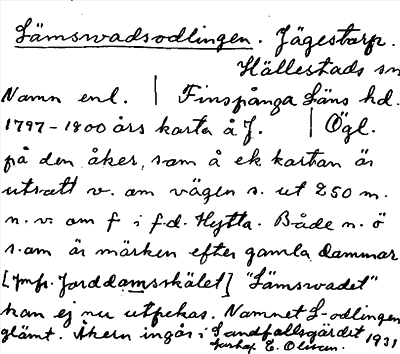 Sämsvadsodlingen. Jägestorp.
Hällestads sn
Namn enl. | Finspånga läns hd.
1797-1800 års karta å J. | Ögl.
på den åker, som å ek kartan är
utsatt v. om vägen s. ut 250 m.
n. v. om f i f.d. Hytta. Både n. ö
s. om är märken efter gamla dammar
[Jmfr. Jorddamsskälet] "Sämsvadet"
kan ej nu utpekas. Namnet S-odlingen
glömt. Åkern ingår i Landfallsgärdet 1931
E. Olsson.